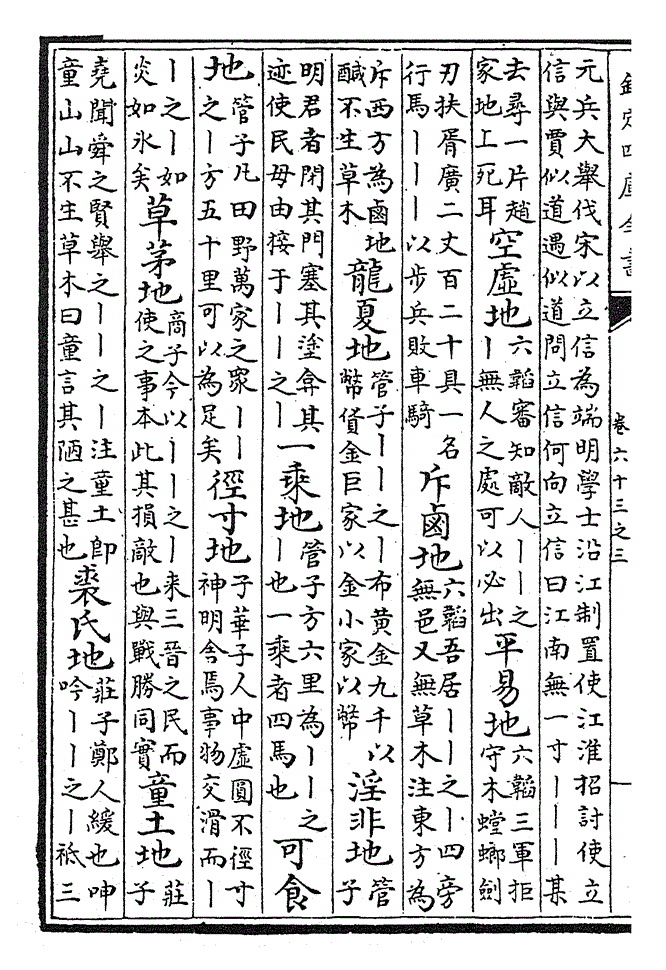 欽定四庫全書 卷六十三之三 一
元兵大舉伐宋以立信為端明學士沿江制置使江淮招討使立信與賈似道遇似道問立信何向立信曰江南無一寸丨丨丨某
去尋一片趙家地上死耳空虛地六韜審知敵人丨丨之丨無人之處可以必出平易地六韜三軍拒守木螳螂劍
刃扶胥廣二丈百二十具一名行馬丨丨丨以步兵敗車騎斥鹵地六韜吾居丨丨之丨四旁無邑又無草木注東方為
斥西方為鹵地鹹不生草木龍夏地管子丨丨之丨布黄金九千以幣貨金巨家以金小家以幣淫非地管子
明君者閉其門塞其塗弇其迹使民毋由接于丨丨之丨一乘地管子方六里為丨丨之丨也一乘者四馬也可食
地管子凡田野萬家之衆丨丨之丨方五十里可以為足矣徑寸地子華子人中虛圓不徑寸神明舍焉事物交滑而丨
丨之丨如炎如氷矣草茅地商子今以丨丨之丨来三晉之民而使之事本此其損敵也與戰勝同實童土地莊子
堯聞舜之賢舉之丨丨之丨注童土即童山山不生草木曰童言其陋之甚也裘氏地莊子鄭人緩也呻吟丨丨之丨祇三